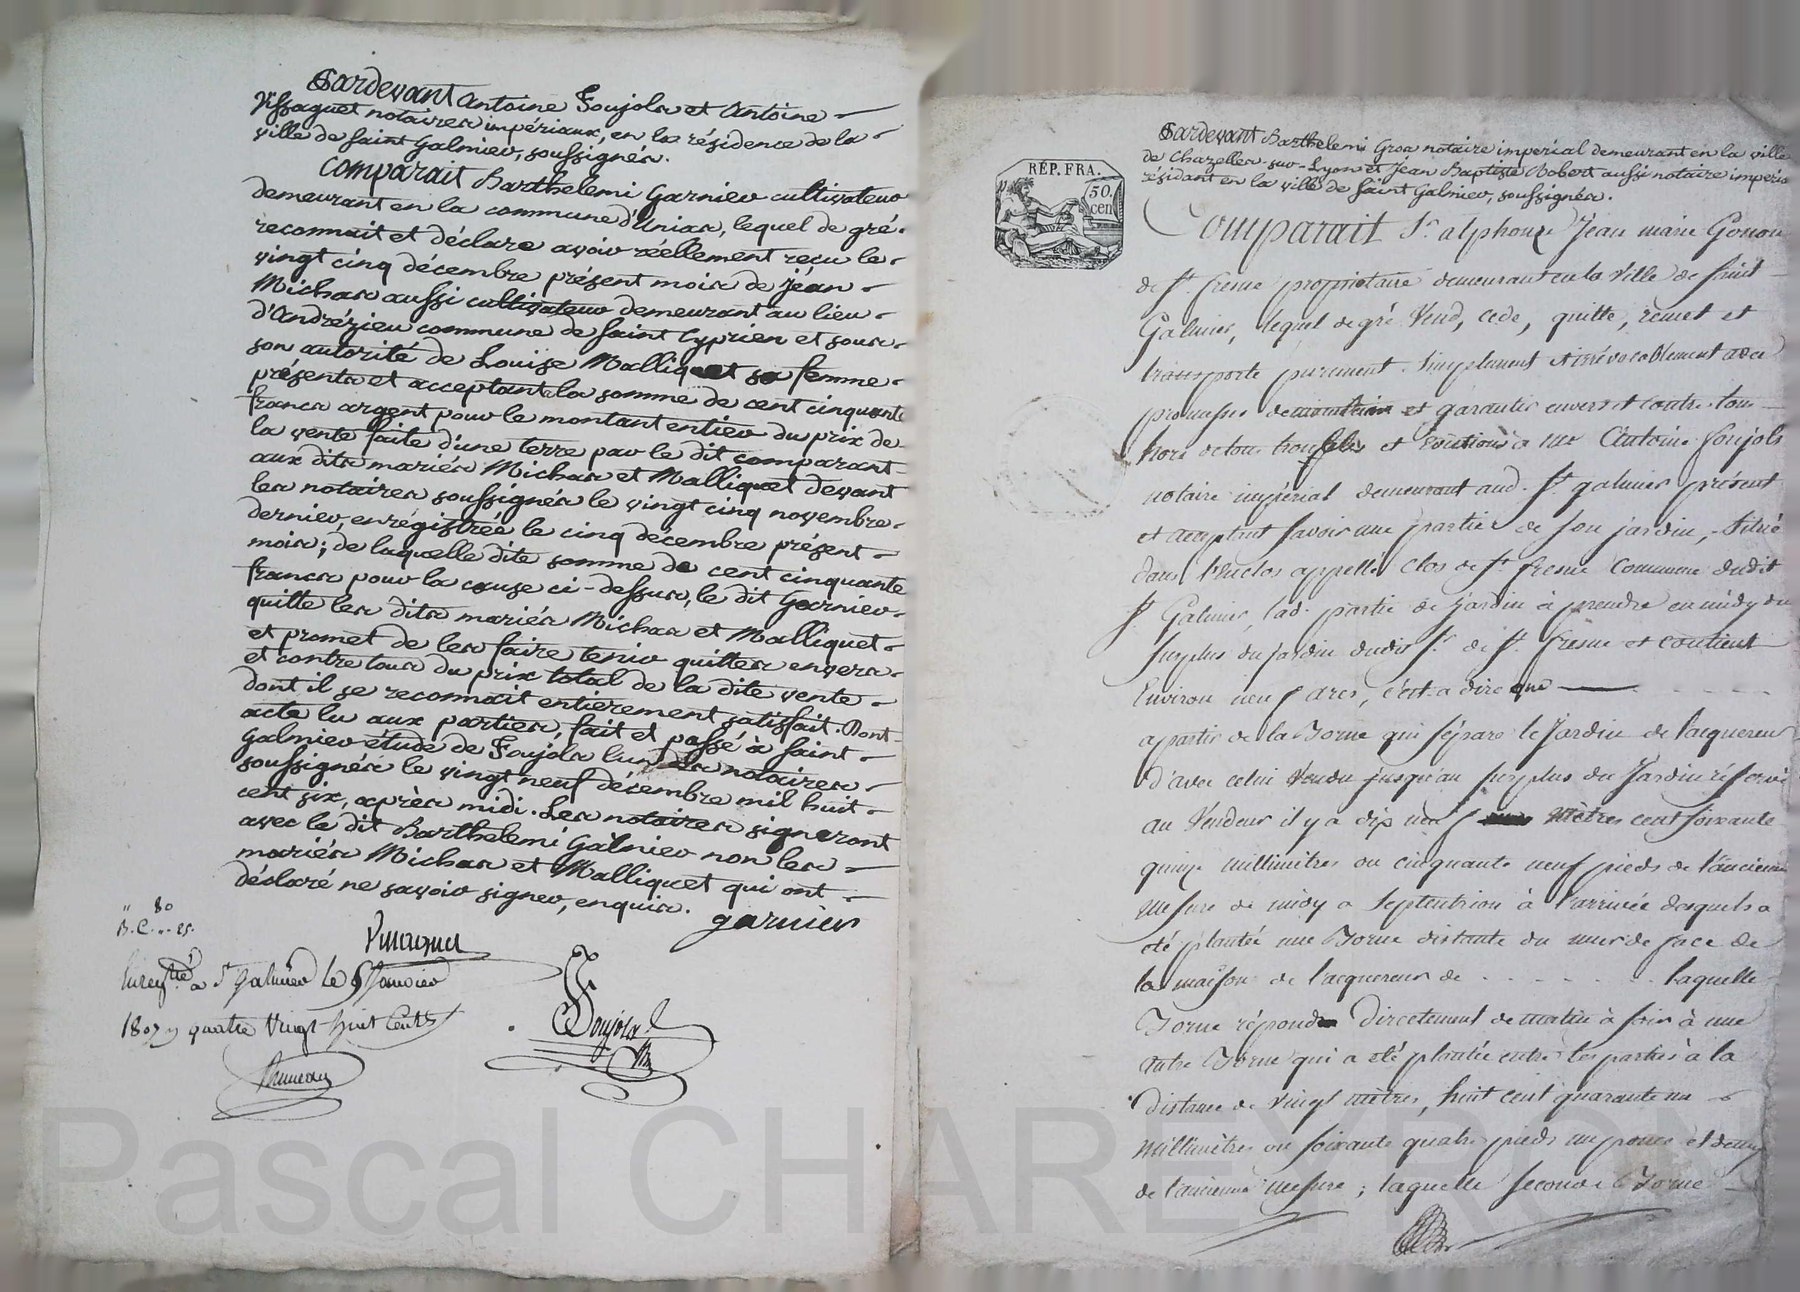 Pardevant Antoine Foujols et Antoine
Vissaguet notaires impériaux, en la résidence de la
ville de saint Galmier, soussignés.
Comparait Barthelemi Garnier cultivateur
demeurant en la commune d'Unias, lequel de gré
reconnait et déclare avoir réellement reçu le
vingt cinq décembre présent mois de jean
Michas aussi cultivateur demeurant au lieu
d'Andrézieu commune de saint Cyprien et sous
son autorité de Louise Malliquet sa femme
présents et acceptant la somme de cent cinquante
francs argent pour le montant entier du prix de
la vente faite d'une terre par le dit comparant
aux dits mariés Michas et Malliquet devant
les notaires soussignés le vingt cinq novembre
dernier, enrégistrée le cinq décembre présent
mois; de laquelle dite somme de cent cinquante
francs pour la cause ci-dessus, le dit Garnier
quitte les dits mariés Michas et Malliquet
et promet de les faire tenir quittes envers
et contre tous du prix total de la dite vente
dont il se reconnait entièrement satisfait. Dont
acte lu aux parties, fait et passé à saint
Galmier étude de Foujols l'un des notaires
soussignés le vingt neuf décembre mil huit
cent six, après midi. Les notaires signeront
avec le dit Barthelemi Galnier non les
mariés Michas et Malliquet qui ont
déclaré ne savoir signer, enquis.
garnier
80
25.
Vissaguet
Enreg.tré à St Galmier le Janvier
1807 quatre vingt huit Cents
Foujols
RÉP. FRA.
50.
cen
Pardevant Barthelemi Gros notaire impérial demeurant en la ville
de Chazelles-sur-Lyon et Jean Baptiste Robert aussi notaire impéria
résidant en la ville de saint Galmier, soussignés.
Comparait Sr. alphonse Jean marie Gonon
de St. fresne propriétaire demeurant en la Ville de saint
Galmier, lequel de gré Vend, cede, quitte, remet et
transporte purement simplement et irrévocablement avec
promesse de maintenir et garantir envers et contre tous
hors de tous troubles et évictions à Mr Antoine foujols
notaire impérial demeurant aud. St. galmier présent
et acceptant savoir une partie de son jardin, situé
dans l'enclos appellé Clos de St fresne Commune dudit
St Galmier, lad. partie de jardin à prendre en midy du
surplus du jardin dudit Sr. de St. fresne et contient
Environ neuf ares, c'est a dire que
a partir de la Borne qui sépare le Jardin de l'acquereur
d'avec celui Vendu jusqu'au surplus du Jardin réservé
au Vendeur il y a dix neuf mètres cent soixante
quinze millimètres ou cinquante neuf pieds de l'ancienne
mesure de midy a septentrion à l'arrivée desquels a
été plantée une Borne distante du mur de face de
la maison de l'acquereur de . . . . . . laquelle
Borne répond directement de matin à soir à une
autre Borne qui a été plantée entre les parties à la
distance de Vingt mètres, huit cent quarante un
millimètres ou soixante quatre pieds un pouce et demy
de l'ancienne mesure ; laquelle seconde Borne
Pascal CHAREYRON